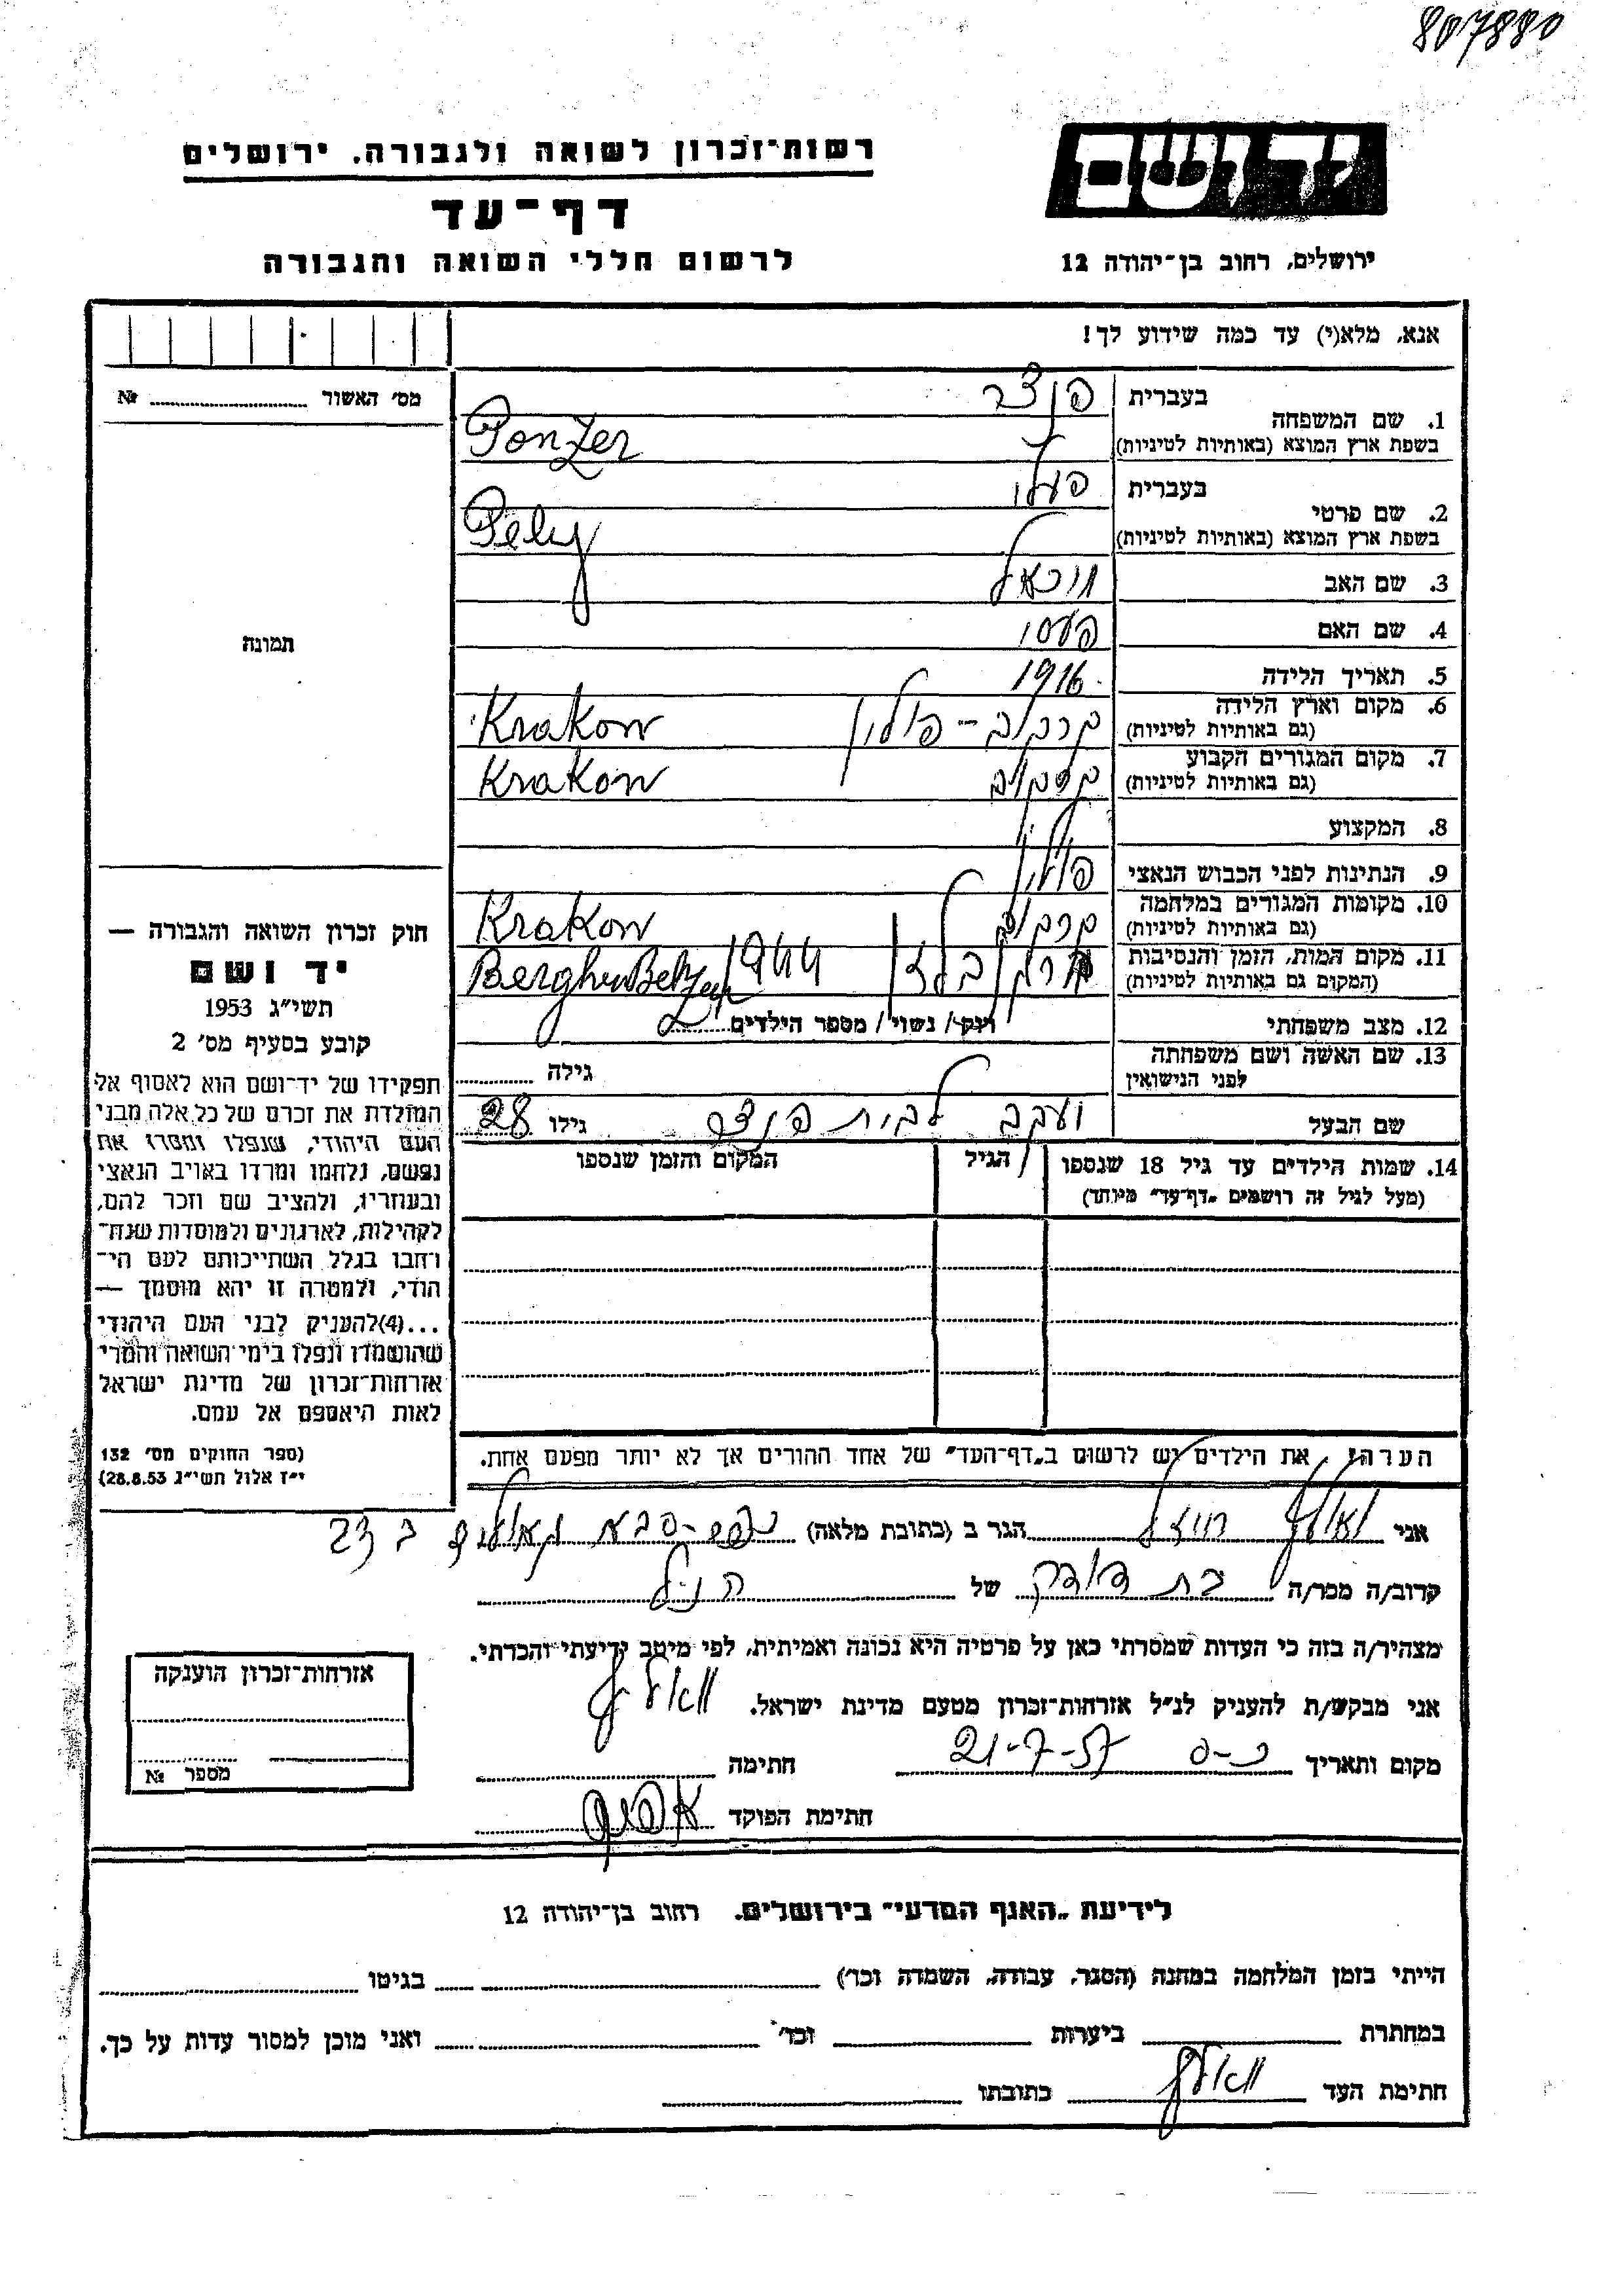 807880
יד ושם
רשות־זכרון לשואה ולגבורה. ירושלים
דף־עד
לרשום חללי השואה והגבורה
ירושלים, רחוב בן־יהודה 12
אנא, מלא(י) עד כמה שידוע לך!
מס' האשור № 
1. שם המשפחה
בעברית פנצר
בשפת ארץ המוצא (באותיות לטיניות) Ponzer
2. שם פרטי
בעברית פעלי
בשפת ארץ המוצא (באותיות לטיניות) Pely
3. שם האב מיכאל
4. שם האם
5. תאריך הלידה 1916
6. מקום וארץ הלידה
(גם באותיות לטיניות) קרקוב - פולין Krakow
7. מקום המגורים הקבוע
(גם באותיות לטיניות) קרקוב Krakow
8. המקצוע
9. הנתינות לפני הכבוש הנאצי פולין
10. מקומות המגורים במלחמה
(גם באותיות לטיניות) קרקוב Krakow
11. מקום המות, הזמן והנסיבות
(המקום גם באותיות לטיניות) ברגן בלזן 1944 Berghen Belzen
12. מצב משפחתי רוק/ נשוי/ מספר הילדים
13. שם האשה ושם משפחתה
לפני הנישואין גילה
שם הבעל יעקב לבית פנצר גילו 28
14. שמות הילדים עד גיל 18 שנספו
(מעל לגיל זה רושמים „דף־עד" מיוחד)
הגיל
המקום והזמן שנספו
הערה: את הילדים יש לרשום ב„דף־העד" של אחד ההורים אך לא יותר מפעם אחת.
תמונה
חוק זכרון השואה והגבורה —
יד ושם
תשי״ג 1953
קובע בסעיף מס' 2
תפקידו של יד־ושם הוא לאסוף אל
המולדת את זכרם של כל אלה מבני
העם היהודי, שנפלו ומסרו את
נפשם, נלחמו ומרדו באויב הנאצי
ובעוזריו, ולהציב שם וזכר להם,
לקהילות, לארגונים ולמוסדות שנח־
רחבו בגלל השתייכותם לעם הי־
הודי, ולמטרה זו יהא מוסמך —
...(4) להעניק לבני העם היהודי
שהושמדו ונפלו בימי השואה והמרי
אזרחות־זכרון של מדינת ישראל
לאות היאספם אל עמם.
(ספר החוקים מס' 132
י״ז אלול תשי״ג 28.8.53)
אני הגר ב (כתובת מלאה) כפר-סבא 23
קרוב/ה מכר/ה בת דודה של הנ״ל
מצהיר/ה בזה כי העדות שמסרתי כאן על פרטיה היא נכונה ואמיתית, לפי מיטב ידיעתי והכרתי.
אני מבקש/ת להעניק לנ״ל אזרחות־זכרון מטעם מדינת ישראל.
מקום ותאריך כ-ס 21-7-57 חתימה
חתימת הפוקד
אזרחות־זכרון הוענקה
מספר №
לידיעת „האגף המדעי" בירושלים. רחוב בן־יהודה 12
הייתי בזמן המלחמה במחנה (הסגר, עבודה, השמדה וכד') בגיטו
במחתרת ביערות וכד' ואני מוכן למסור עדות על כך.
חתימת העד כתובתו